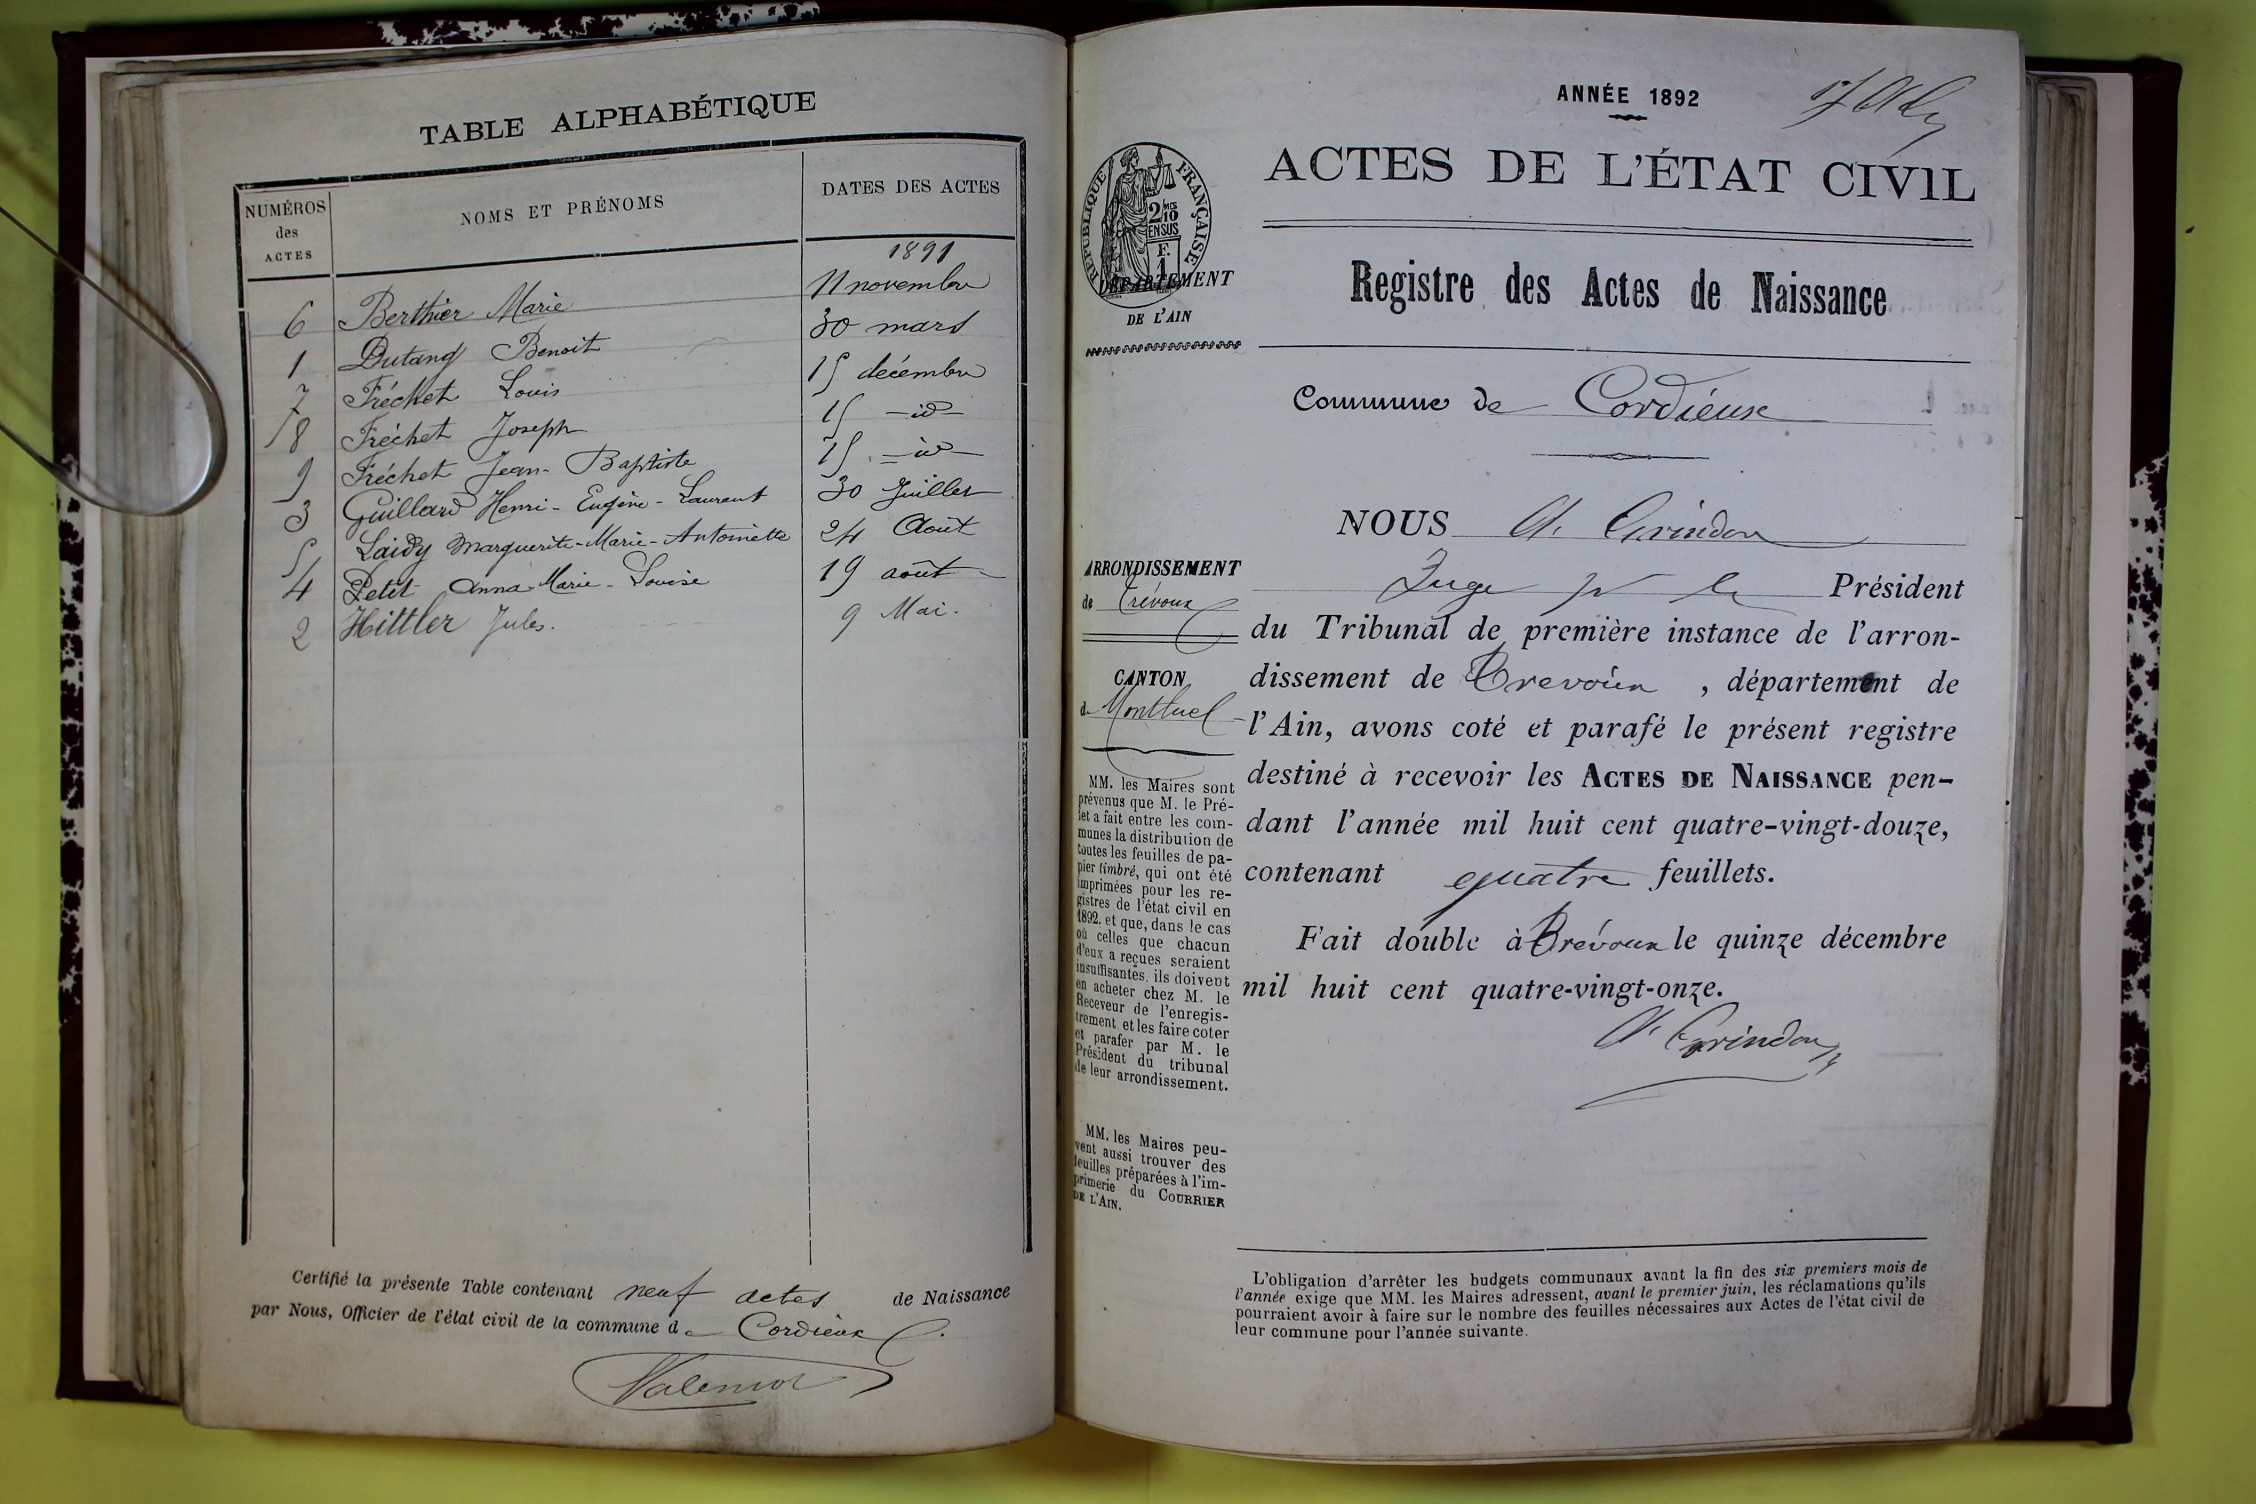 TABLE ALPHABÉTIQUE
NUMÉROS des ACTES
NOMS ET PRÉNOMS
DATES DES ACTES
1891
6 Berthier Marie 11 novembre
1 Dutang Benoit 30 mars
7 Fréchet Louis 15 décembre
8 Fréchet Joseph 15 -id-
9 Fréchet Jean-Baptiste 15 -id-
3 Guillard Henri-Eugène-Laurent 30 Juillet
5 Laidy Marguerite-Marie-Antoinette 24 Août
4 Petit Anna-Marie-Louise 19 août
2 Hittler Jules. 9 Mai.
Certifié la présente Table contenant neuf actes de Naissance
par Nous, Officier de l'état civil de la commune de Cordieux
ANNÉE 1892
ACTES DE L'ÉTAT CIVIL
RÉPUBLIQUE FRANÇAISE
2/10 MES
EN SUS
F.
1
DÉPARTEMENT
DE L'AIN
Registre des Actes de Naissance
Commune de Cordieux
NOUS A. Grindon
Juge pr le Président
ARRONDISSEMENT
de Trévoux
CANTON
de Montluel
du Tribunal de première instance de l'arron-
dissement de Trévoux, département de
l'Ain, avons coté et parafé le présent registre
destiné à recevoir les ACTES DE NAISSANCE pen-
dant l'année mil huit cent quatre-vingt-douze,
contenant quatre feuillets.
Fait double à Trévoux le quinze décembre
mil huit cent quatre-vingt-onze.
A. Grindon
MM. les Maires sont
prévenus que M. le Pré-
fet a fait entre les com-
munes la distribution de
toutes les feuilles de pa-
pier timbré, qui ont été
imprimées pour les re-
gistres de l'état civil en
1892. et que, dans le cas
où celles que chacun
d'eux a reçues seraient
insuffisantes, ils doivent
en acheter chez M. le
Receveur de l'enregis-
trement et les faire coter
et parafer par M. le
Président du tribunal
de leur arrondissement.
MM. les Maires peu-
vent aussi trouver des
feuilles préparées à l'im-
primerie du COURRIER
DE L'AIN.
L'obligation d'arrêter les budgets communaux avant la fin des six premiers mois de
l'année exige que MM. les Maires adressent, avant le premier juin, les réclamations qu'ils
pourraient avoir à faire sur le nombre des feuilles nécessaires aux Actes de l'état civil de
leur commune pour l'année suivante.